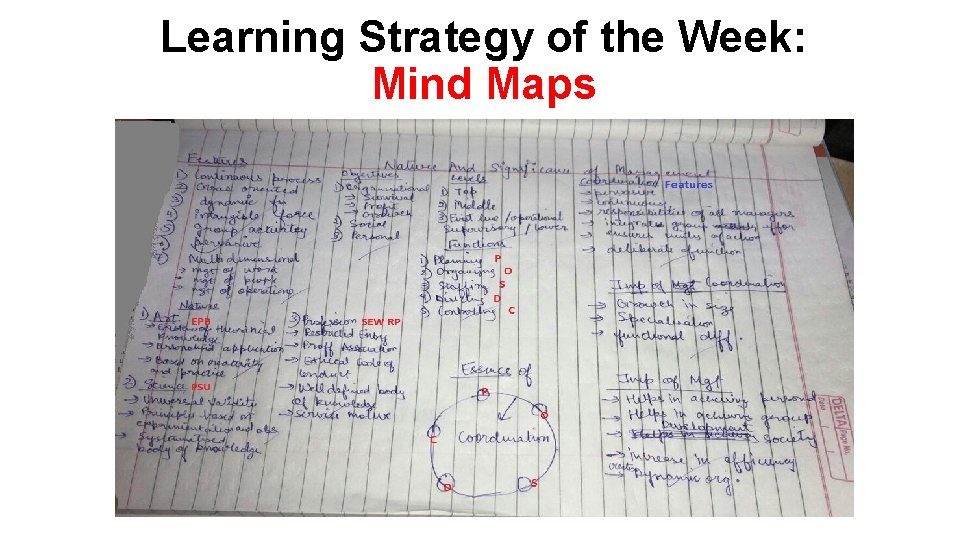 Learning Strategy of the Week:
Mind Maps
Nature And Significance of Management
Features
1) Continuous process
2) Goal oriented
dynamic fn
intangible force
group activity
pervasive
Multidimensional
→ mgt of work
→ mgt of people
→ mgt of operations
Nature
1) Art EPB
→ Existence of theoretical
knowledge
→ Personalised application
→ Based on creativity
and practice
2) Science PSU
→ Universal validity
→ Principles based on
→ Systematised
body of knowledge
Objectives
1) Organisational
→ Survival
→ Profit
→ Growth
2) Social
3) Personal
3) Profession SEW RP
→ Restricted Entry
→ Proff Association
→ Ethical Code of
Conduct
→ Well defined body
of knowledge
→ Service motive
Levels
1) Top
2) Middle
3) First line / operational
Supervisory / lower
Functions
1) Planning P
2) Organising O
3) Staffing S
4) Directing D
5) Controlling C
Essence of
Coordination
P
O
S
D
C
Coordination Features
→ pervasive
→ continuous
→ responsibilities of all managers
→ integrates group
→ ensures unity of action
→ deliberate function
Imp of Mgt Coordination
→ Growth in size
→ Specialisation
→ functional diff.
Imp of Mgt
→ Helps in achieving personal
→ Helps in achieving group
Development
society
→ Increase in efficiency
→ creates Dynamic org.
DELTA Page No.
Date